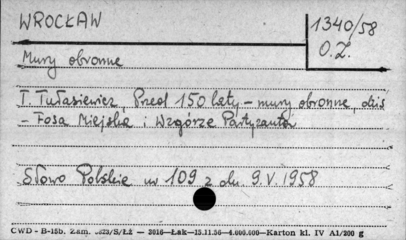 WROCŁAW
1340/58
O.Z.
Mury obronne
T. Tułasiewicz, Przed 150 laty – mury obronne, dziś
– Fosa Miejska i Wzgórze Partyzantów
Słowo Polskie nr 109 z dn. 9.V.1958
CWD - B-15b. Zam. S/ŁŻ — 3016—Łak—15.11.56—4.000.000—Karton kl. IV A1/200 g